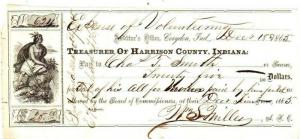 No. 624
Expense of Volunteering
Auditor's Office, Corydon, Ind., Dec 15 1865
TREASURER OF HARRISON COUNTY, INDIANA:
Pay to Chas T. Smith or Bearer,
Twenty five Dollars
out of his All for paid by him
allowed by the Board of Commissioners, at their Dec 1865
$25.00 A. H. C.